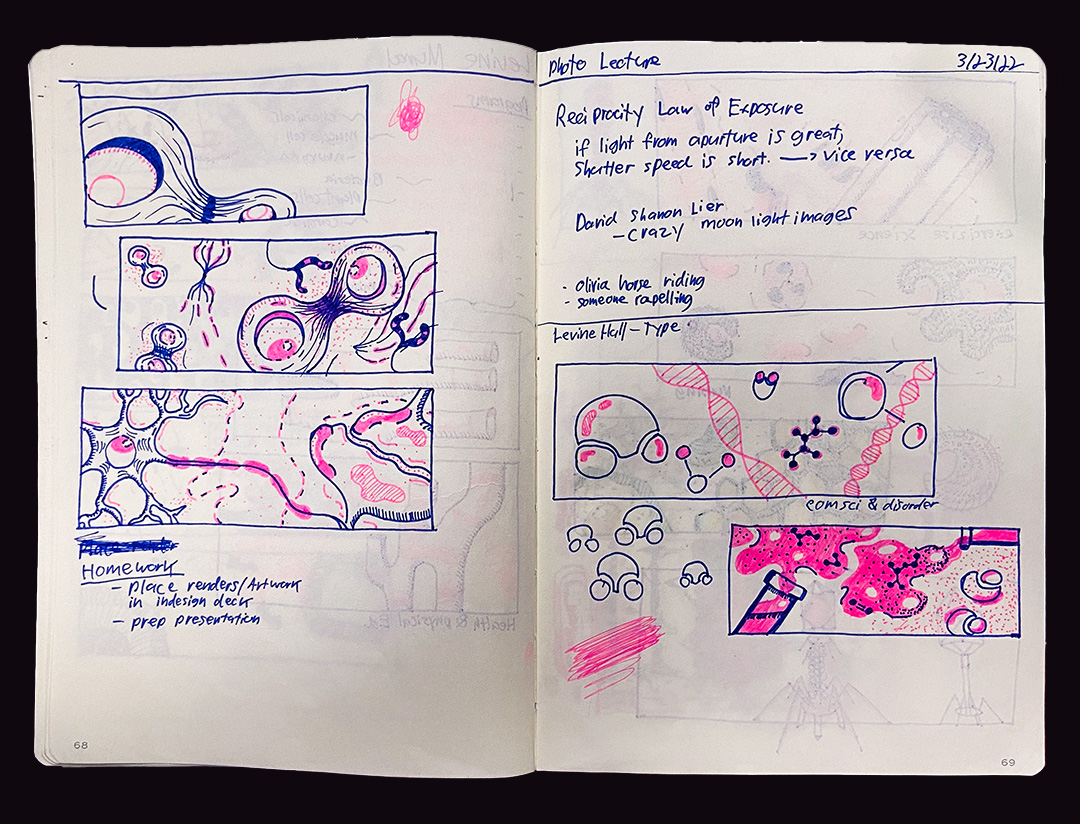 Homework
- Place renders/Artwork
in indesign deck
- prep presentation
68
Photo Lecture 3/23/22
Reciprocity Law of Exposure
if light from aparture is great,
Shutter speed is short. → vice versa
David Shanon Lier
- crazy moon light images
- olivia horse riding
- someone rapelling
Levine Hall - Type
comsci & disorder
69
Levine
Programs
Exercise Science
Nursing
Health & physical Ed.